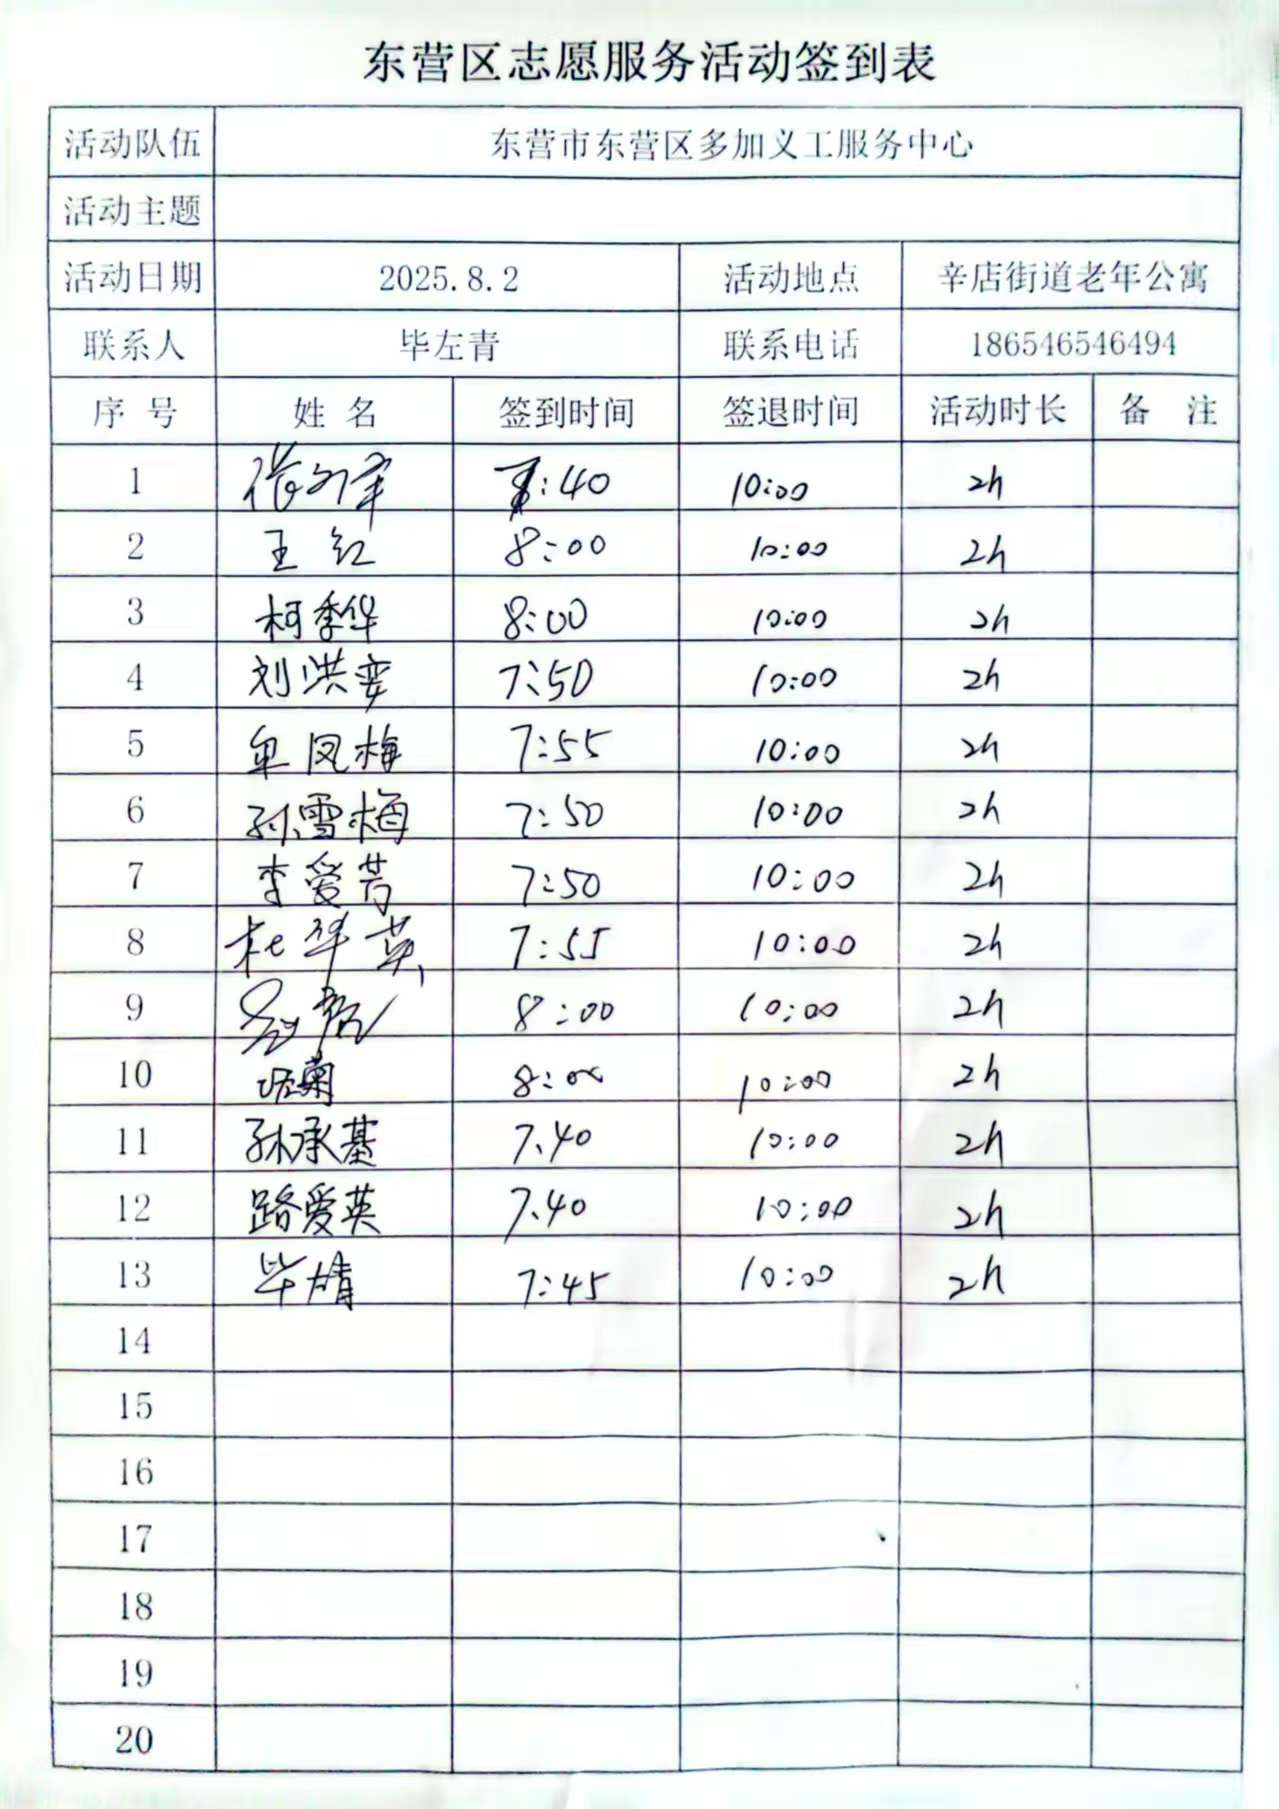 东营区志愿服务活动签到表
活动队伍 东营市东营区多加义工服务中心
活动主题
活动日期 2025.8.2 活动地点 辛店街道老年公寓
联系人 毕左青 联系电话 186546546494
序 号 姓 名 签到时间 签退时间 活动时长 备 注
1 :40 10:00 2h
2 王红 8:00 10:00 2h
3 柯季华 8:00 10:00 2h
4 刘洪 7:50 10:00 2h
5 凤梅 7:55 10:00 2h
6 孙雪梅 7:50 10:00 2h
7 李爱芳 7:50 10:00 2h
8 杜华英 7:55 10:00 2h
9 8:00 10:00 2h
10 菊 8:00 10:00 2h
11 孙承基 7.40 10:00 2h
12 路爱英 7.40 10:00 2h
13 毕 7:45 10:00 2h
14
15
16
17
18
19
20